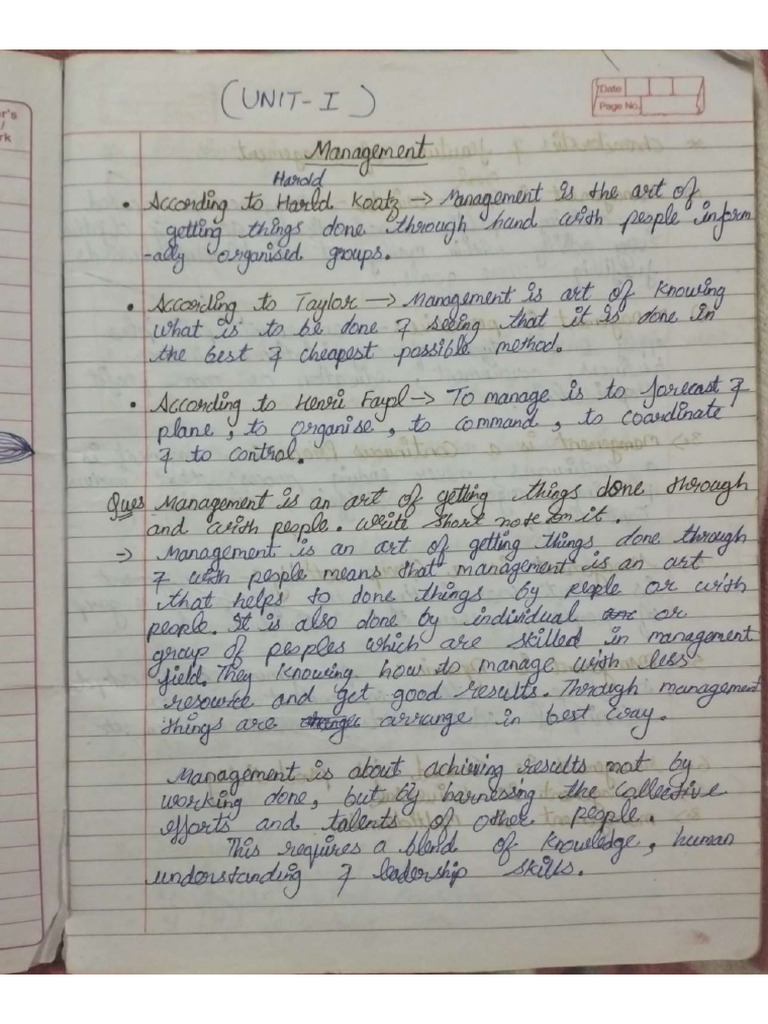 (UNIT-I)
Date
Page No.
Management
Harold
• According to Harld Koatz → Management is the art of
getting things done through hand with people inform
-ally organised groups.
• According to Taylor → Management is art of knowing
what is to be done & seeing that it is done in
the best & cheapest possible method.
• According to Henri Fayol → To manage is to forecast &
plane, to organise, to command, to coordinate
& to control.
Ques Management is an art of getting things done through
and with people. Write short note on it.
→ Management is an art of getting things done through
& with people means that management is an art
that helps to done things by people or with
people. It is also done by individual or
group of peoples which are skilled in management
field. They knowing how to manage with less
resource and get good results. Through management
things are arrange in best way.
Management is about achiving results not by
working done, but by harnessing the collective
efforts and talents of other people.
This requires a blend of knowledge, human
understanding & leadership skills.